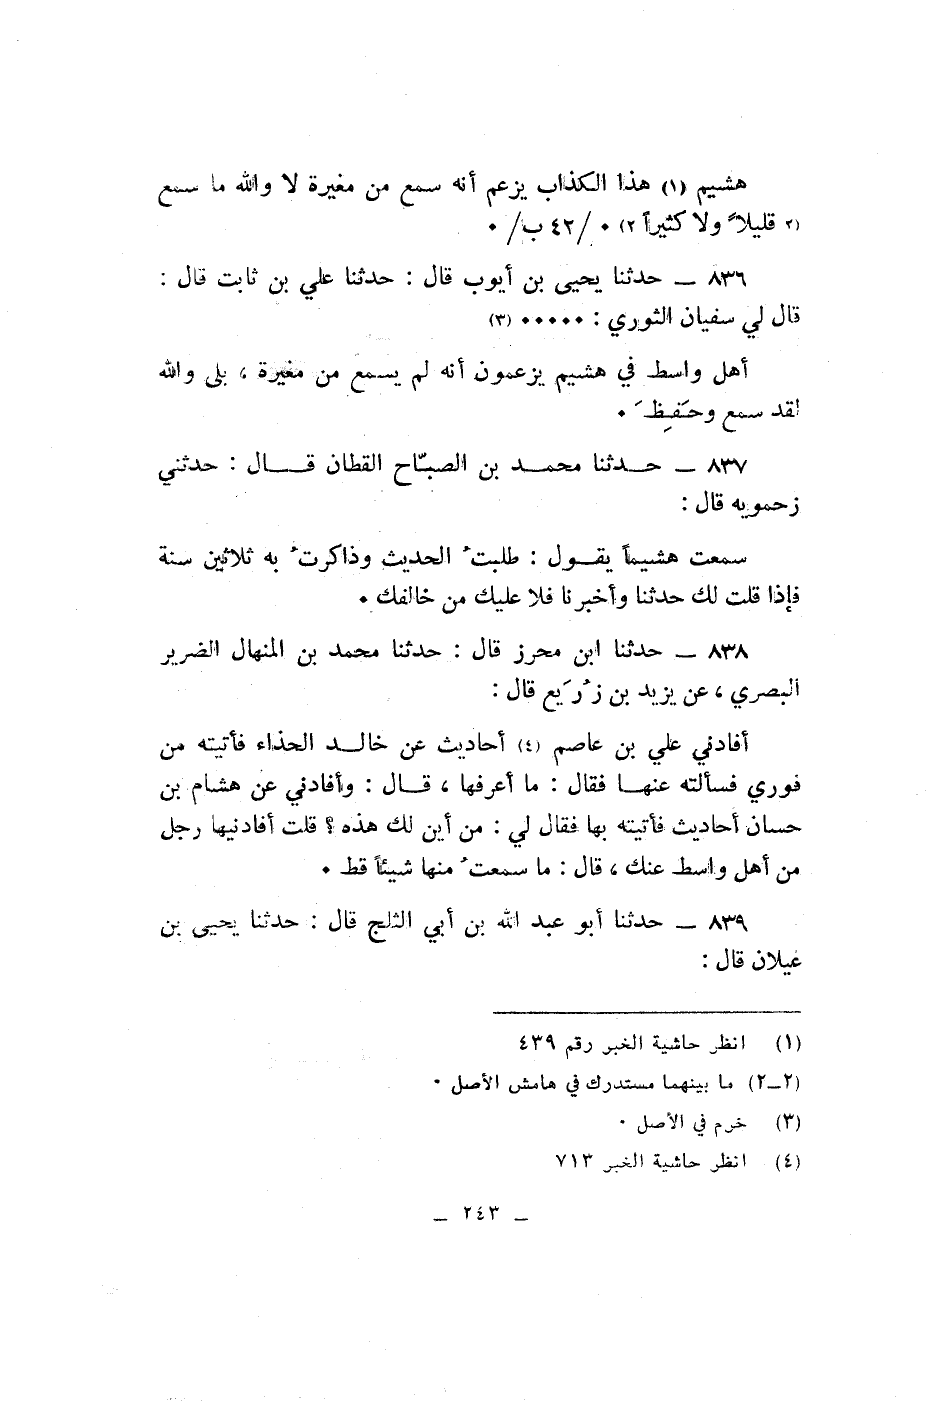 هشيم (١) هذا الكذاب يزعم أنه سمع من مغيرة لا والله ما سمع
(٢ قليلاً ولا كثيراً ٢) ٠ /٤٢ ب/ ٠
٨٣٦ ــ حدثنا يحيى بن أيوب قال : حدثنا علي بن ثابت قال :
قال لي سفيان الثوري : ٠٠٠٠٠ (٣)
أهل واسط في هشيم يزعمون أنه لم يسمع من مغيرة ، بلى والله
لقد سمع وحَفِظَ ٠
٨٣٧ ــ حدثنا محمد بن الصبّاح القطان قال : حدثني
زحمويه قال :
سمعت هشيماً يقول : طلبتُ الحديث وذاكرتُ به ثلاثين سنة
فإذا قلت لك حدثنا وأخبرنا فلا عليك من خالفك ٠
٨٣٨ ــ حدثنا ابن محرز قال : حدثنا محمد بن المنهال الضرير
البصري ، عن يزيد بن زُرَيع قال :
أفادني علي بن عاصم (٤) أحاديث عن خالد الحذاء فأتيته من
فوري فسألته عنها فقال : ما أعرفها ، قال : وأفادني عن هشام بن
حسان أحاديث فأتيته بها فقال لي : من أين لك هذه ؟ قلت أفادنيها رجل
من أهل واسط عنك ، قال : ما سمعتُ منها شيئاً قط ٠
٨٣٩ ــ حدثنا أبو عبد الله بن أبي الثلج قال : حدثنا يحيى بن
غيلان قال :
(١) انظر حاشية الخبر رقم ٤٣٩
(٢ــ٢) ما بينهما مستدرك في هامش الأصل ٠
(٣) خرم في الأصل ٠
(٤) انظر حاشية الخبر ٧١٣
ــ ٢٤٣ ــ